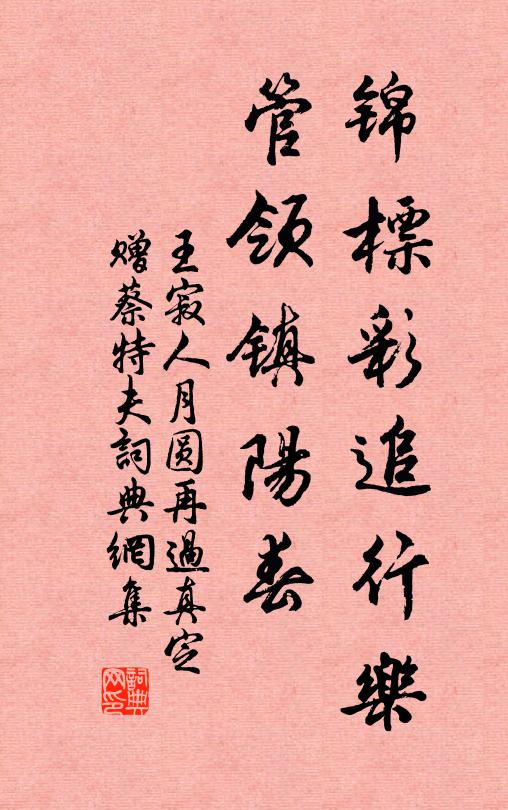 錦標彩追行樂
管領鎮陽春
王寂人月圆再過真定
赠蔡特夫詞典網集
詞典网印